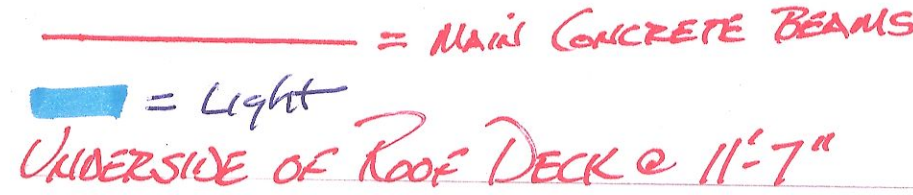 = MAIN CONCRETE BEAMS
= Light
UNDERSIDE OF ROOF DECK @ 11'-7"